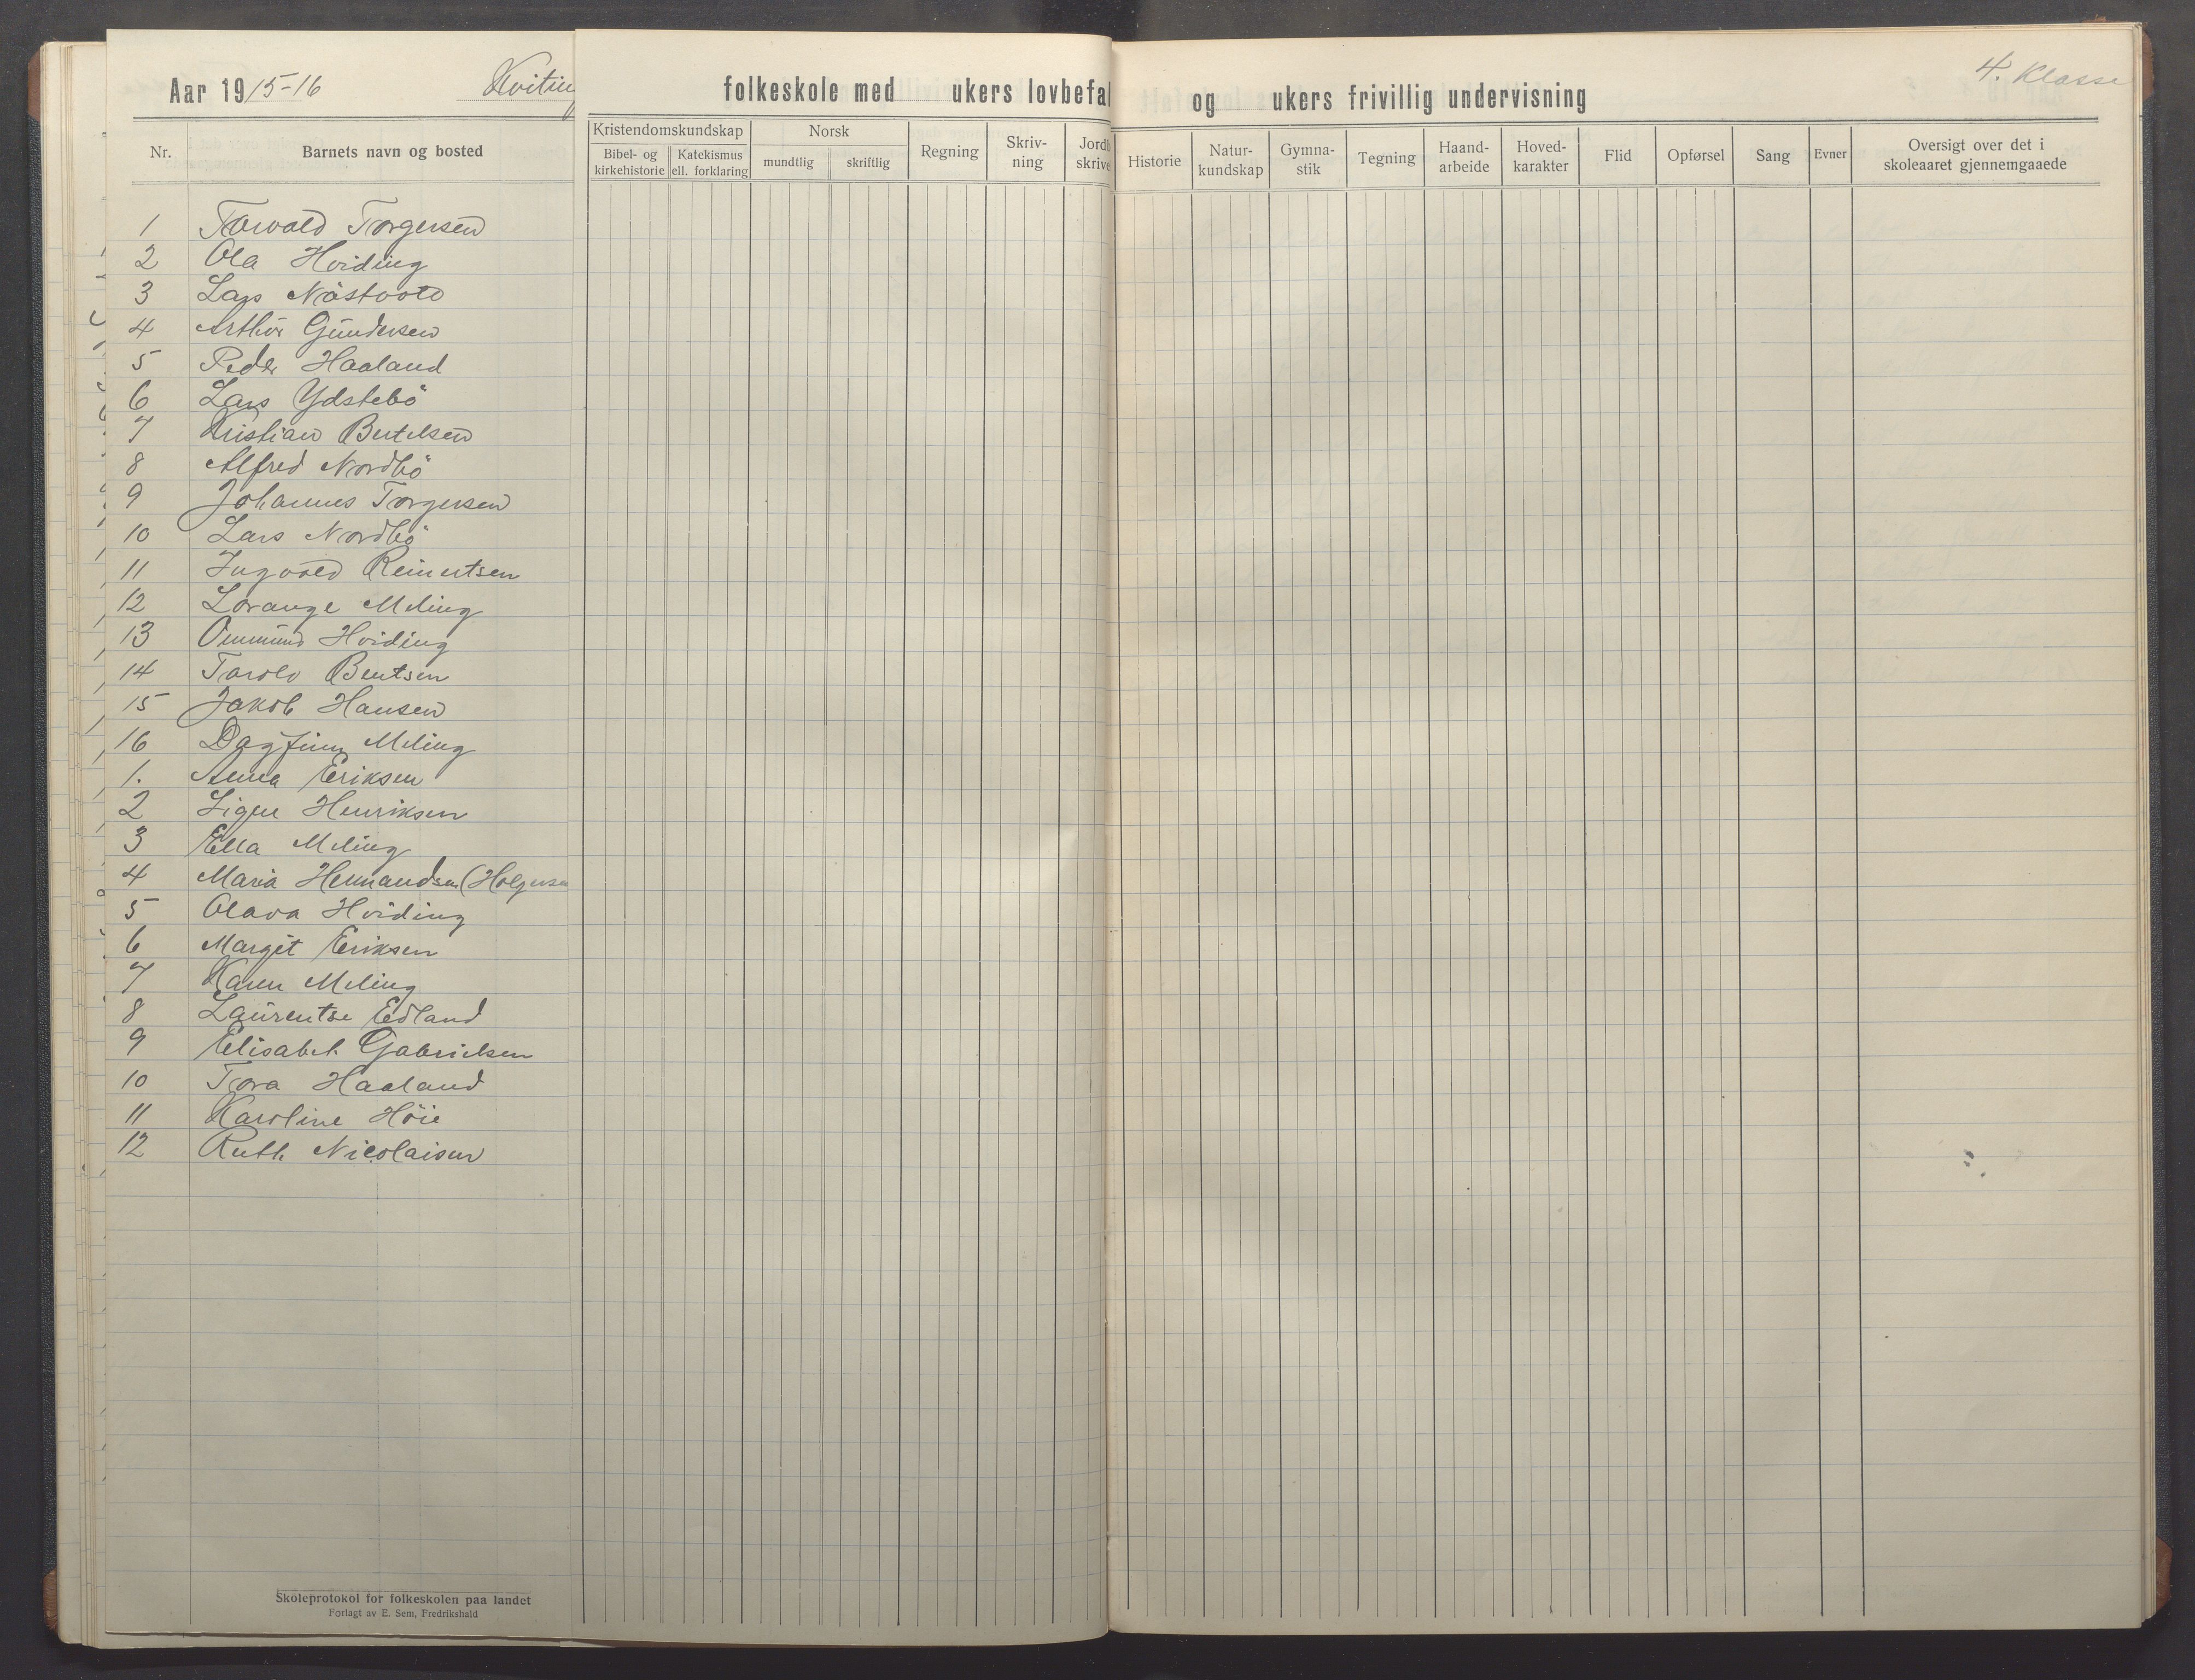 Aar 1915-16
folkeskole med ukers lovbefal og ukers frivillig undervisning
4. Klasse
Nr. Barnets navn og bosted
Kristendomskundskap
Bibel- og kirkehistorie
Katekismus ell. forklaring
Norsk
mundtlig
skriftlig
Regning
Skriv-
ning
Historie
Natur-
kundskap
Gymna-
stik
Tegning
Haand-
arbeide
Hoved-
karakter
Flid
Opførsel
Sang
Evner
Oversigt over det i
skoleaaret gjennemgaaede
1 Torvald Torgersen
2 Ola Hviding
3 Lars Nåstvold
4 Arthur Gundersen
5 Peder Haaland
6 Lars Ydstebö
7 Kristian Bertelsen
8 Alfred Nordbö
9 Johannes Torgersen
10 Lars Nordbö
11 Ingvald Reinertsen
12 Lorange Meling
13 Ommund Hviding
14 Bentsen
15 Jakob Hansen
16 Dagfinn Meling
1. Anna Eriksen
2 Signe Henriksen
3 Ella Meling
4 Maria Hermandsen (Holgersen
5 Olava Hviding
6 Margit Eriksen
7 Karen Meling
8 Laurentse Edland
9 Elisabet Gabrielsen
10 Tora Haaland
11 Karoline Höie
12 Ruth Nicolaisen
Skoleprotokol for folkeskolen paa landet
Forlagt av E. Sem, Fredrikshald